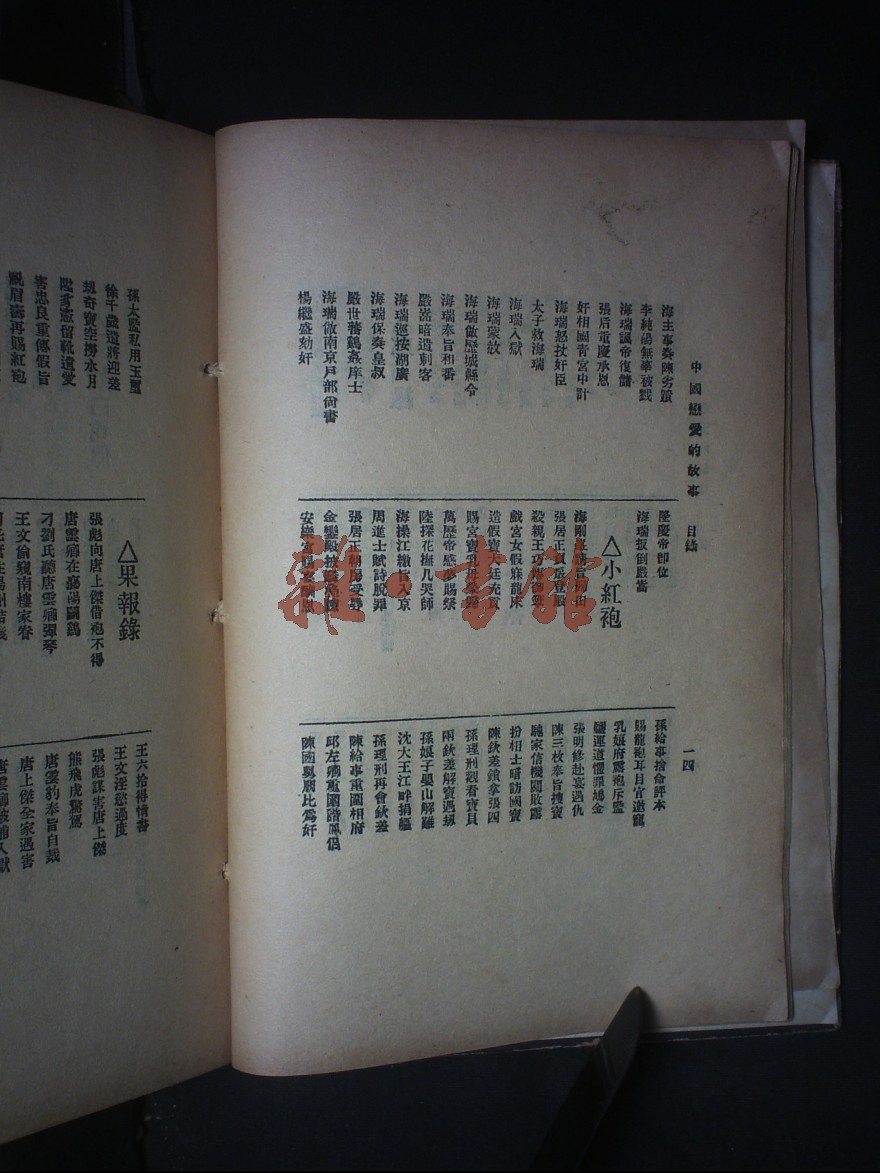 中國戀愛的故事　目錄
一四
海主事奏陳劣蹟
李純陽無辜被戮
張后重慶承恩
海瑞諷帝復儲
奸相圖青宮中計
海瑞怒杖奸臣
太子救海瑞
海瑞入獄
海瑞蒙赦
海瑞做歷城縣令
海瑞奉旨和番
嚴嵩暗遣刺客
海瑞巡按湖廣
海瑞保奏皇叔
嚴世蕃鷄姦庠士
海瑞做南京戶部尙書
楊繼盛劾奸
隆慶帝卽位
海瑞扳倒嚴嵩
△小紅袍
殺親王巧傳御筆
戲宮女假寐龍床
造假寶大廷充貢
萬歷帝感夢賜祭
陸探花撫几哭師
海操江繳旨入京
周進士賦詩脫罪
孫給事捨命評本
賜龍袍耳目官邀寵
乳娘府驚袍斥監
鹽運道懼罪鳩金
張明修赴宴遇仇
陳三枚奉旨搜寶
騙家信機關敗露
扮相士暗訪國寶
陳欽差鎖拿張四
孫理刑觀看寶貝
兩欽差解寶遇刼
孫娘子嬰山解難
沈大王江畔捐軀
孫理刑再會欽差
陳給事重圍相府
邱左卿重圍諧鳳侶
陳國舅朋比爲奸
孫太監私用玉璽
徐千歲道將迎差
刼奇寶空撈水月
害忠良重傳假旨
△果報錄
張彪向唐上傑借袍不得
刁劉氏聽唐雲卿彈琴
王文偷窺南樓家眷
王六拾得情書
王文淫慾過度
張彪謀害唐上傑
熊飛虎驚駕
唐雲豹奉旨自裁
唐上傑全家遇害